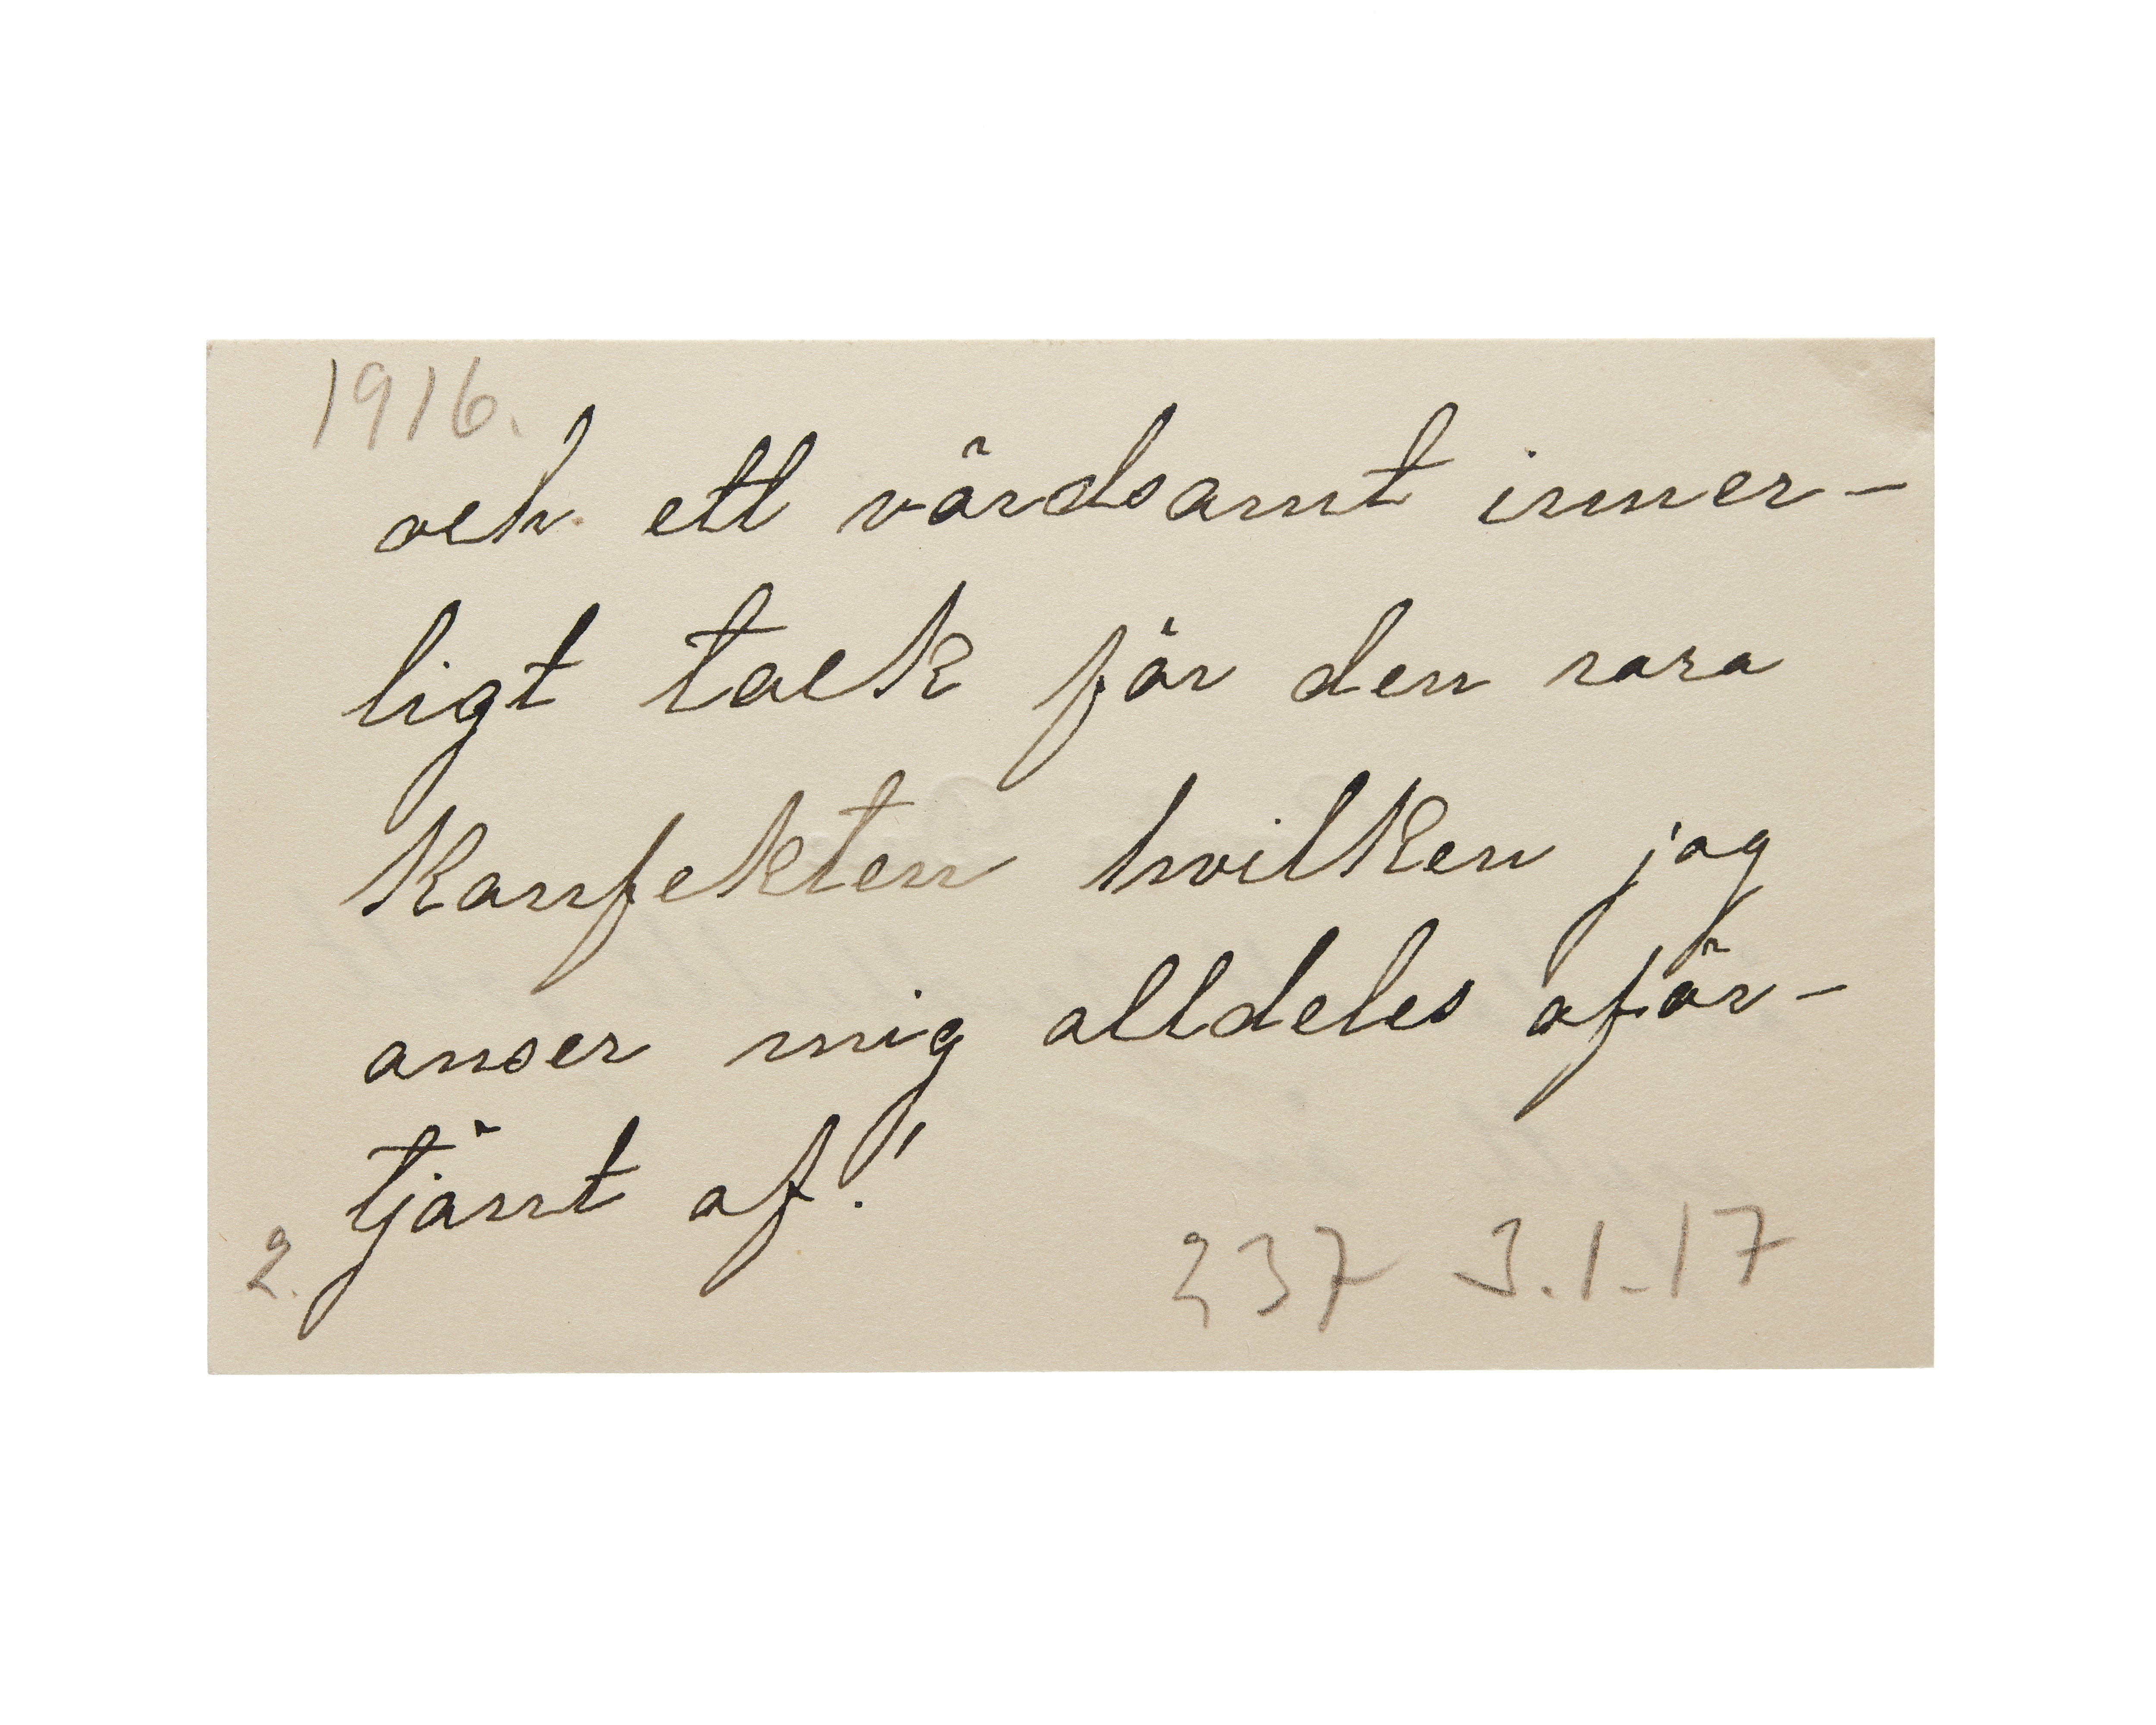 1916.
och ett värdsamt inner-
ligt tack för den rara
Konfekten hvilken jag
anser mig alldeles oför-
tjänt af!
2.
237 3.1-17